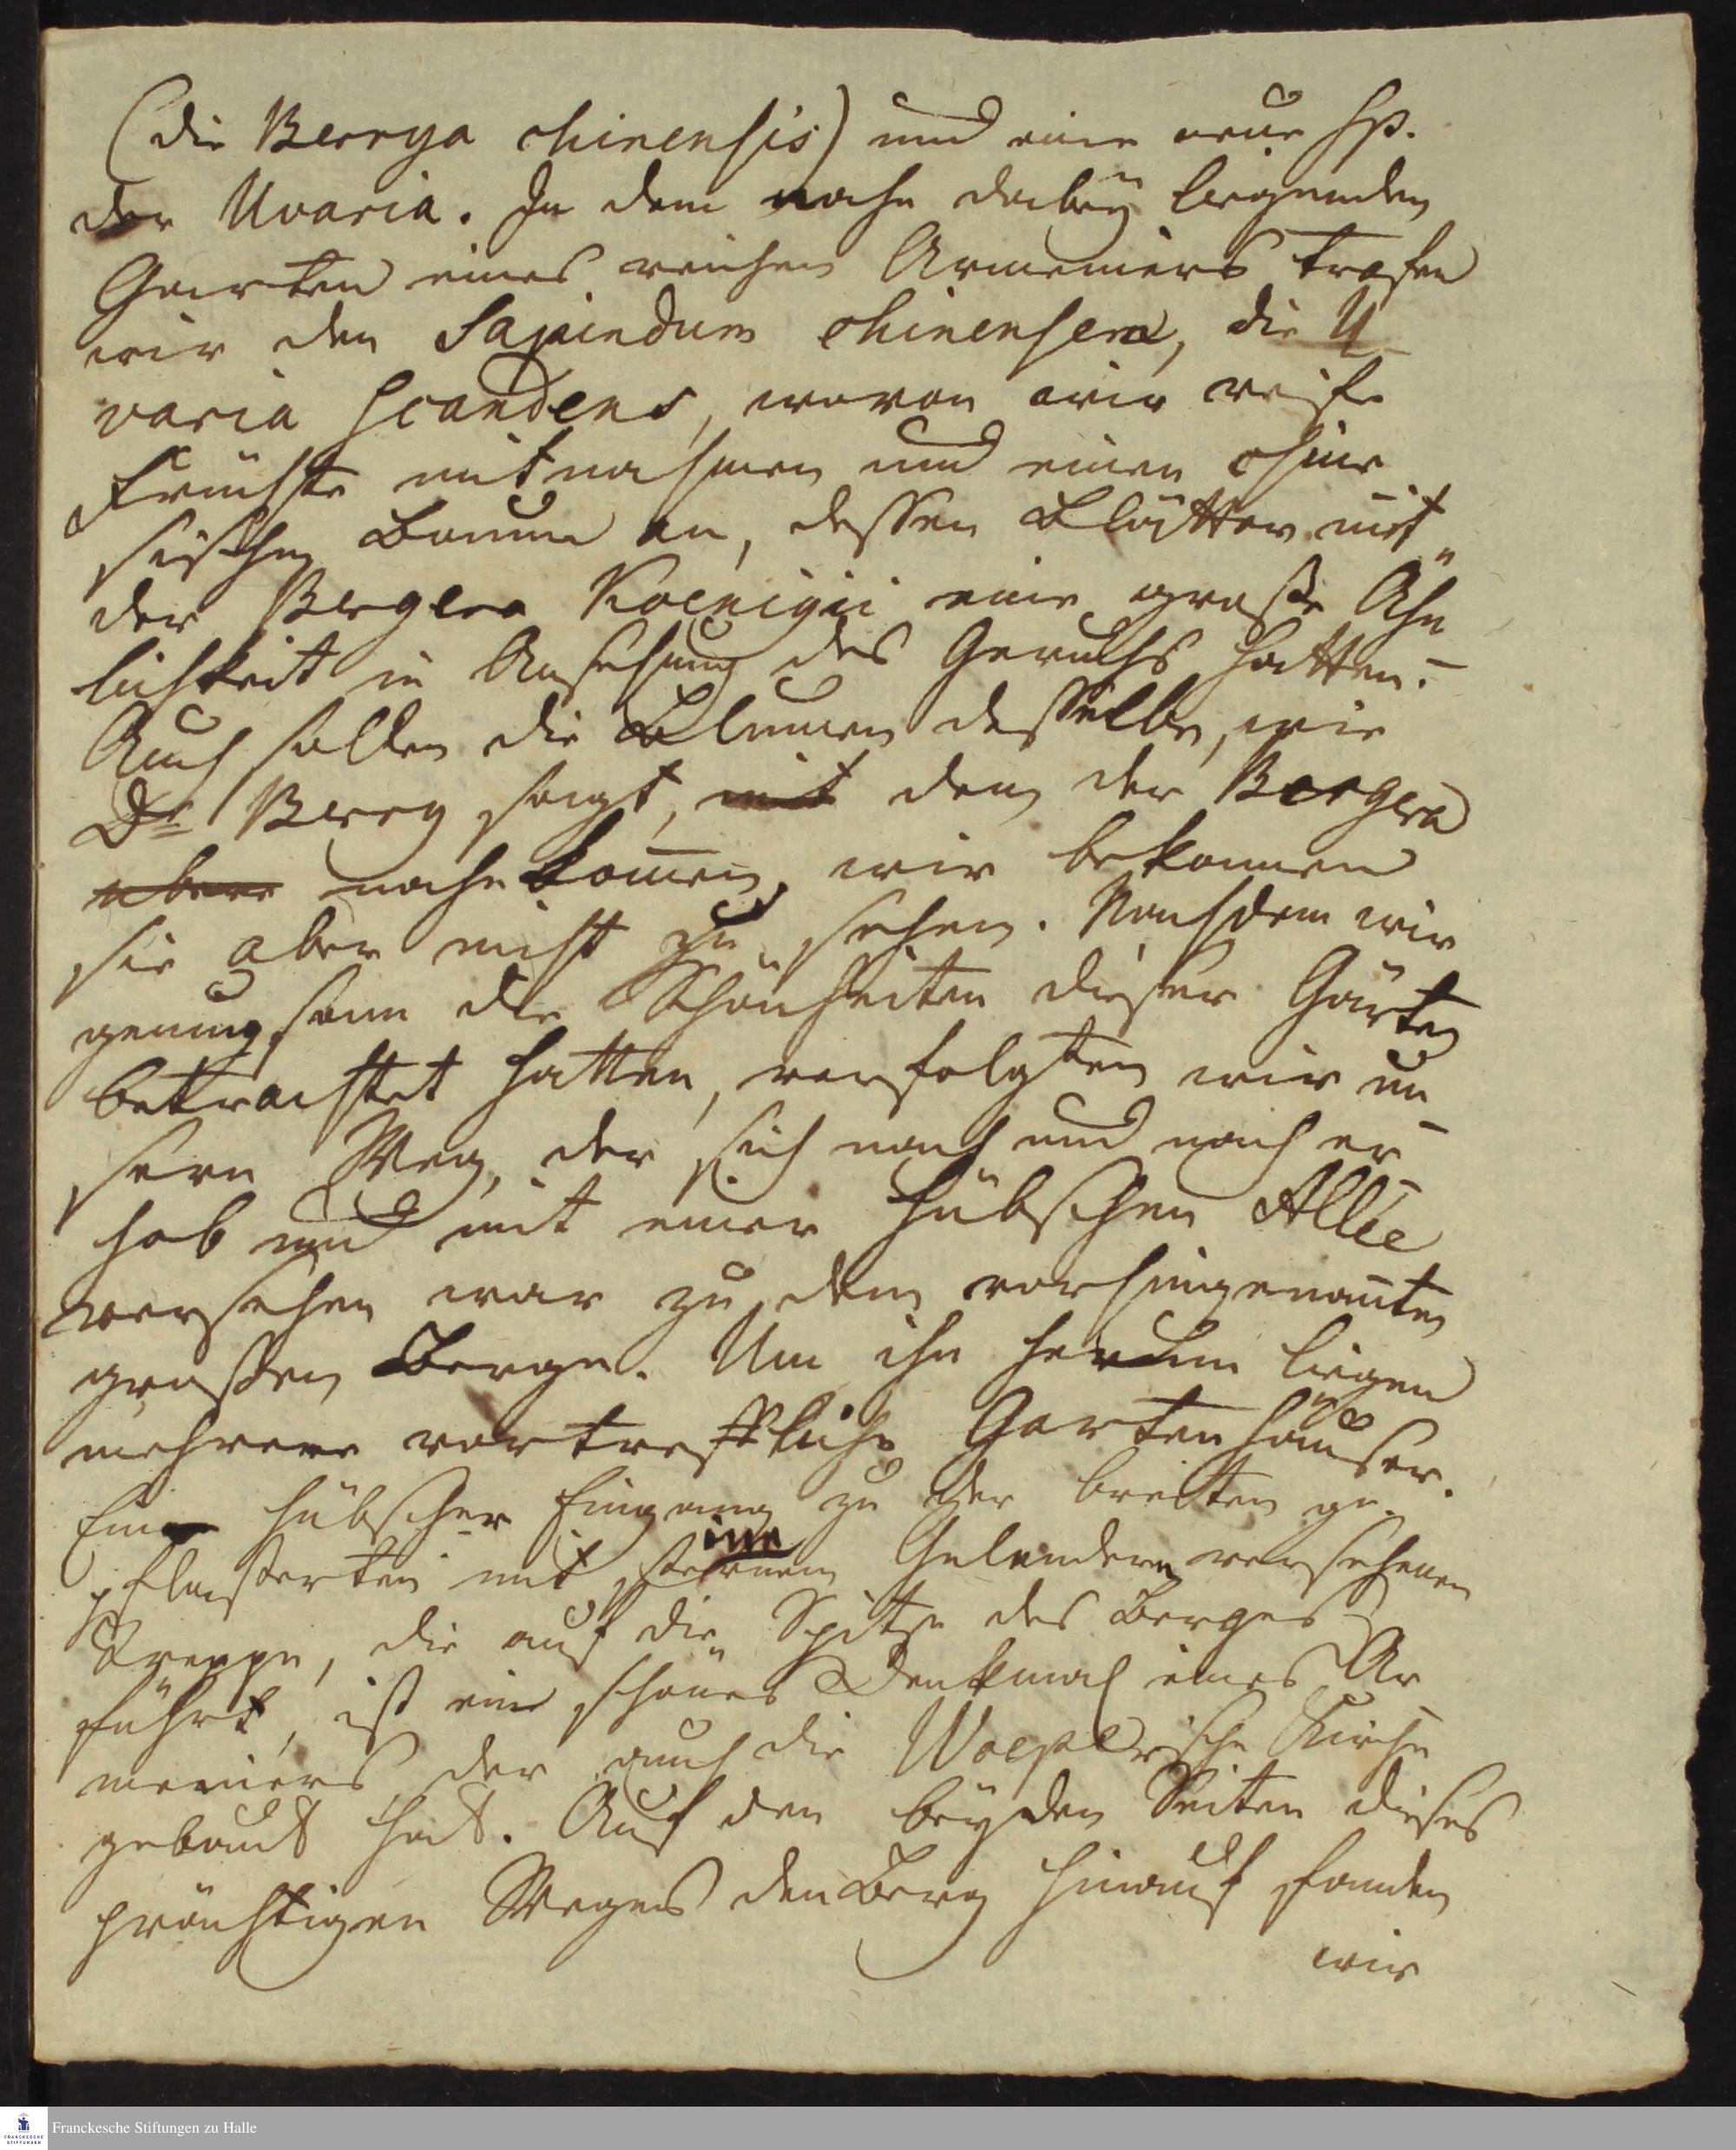 (die Berrya chinensis) und eine neue sp.
der Uvaria. In dem nahe dabey liegenden
Garten eines reichen Armeniers trafen
wir den Sapindum chinensem, die U-
varia scandens, wovon wir reife
Früchte mitnahmen und einen chine
sischen Baum an, dessen Blätter mit
der Bergera Koenigii eine große Ähn
lichkeit in Ansehung des Geruchs hatten.-
Auch sollen die Blumen desselben, wie
Dr Berry sagt, mit den der Bergera
nahe kom̄en, wir bekamen
sie aber nicht zu sehen. Nachdem wir
genungsam die Schönheiten dieser Gärten
betrachtet hatten, verfolgten wir un-
sern Weg, der sich nach und nach er-
hob und mit einer hübschen Allée
versehen war zu dem vorhingenan̄ten
großen Berge. Um ihn herum liegen
mehrere vortreffliche Gartenhäuser.
Ein hübscher Eingang zu der breiten ge-
pflasterten mit steinernen Gelendern versehenen
Treppe, die auf die Spitze des Berges
führt, ist ein schönes Denkmal eines Ar-
meniers der auch die Woeplrische Kirche
gebaut hat. Auf den beyden Seiten dieses
prächtigen Weges den Berg hinauf fanden
wir
Franckesche Stiftungen zu Halle
FRANCKESCHE
STIFTUNGEN